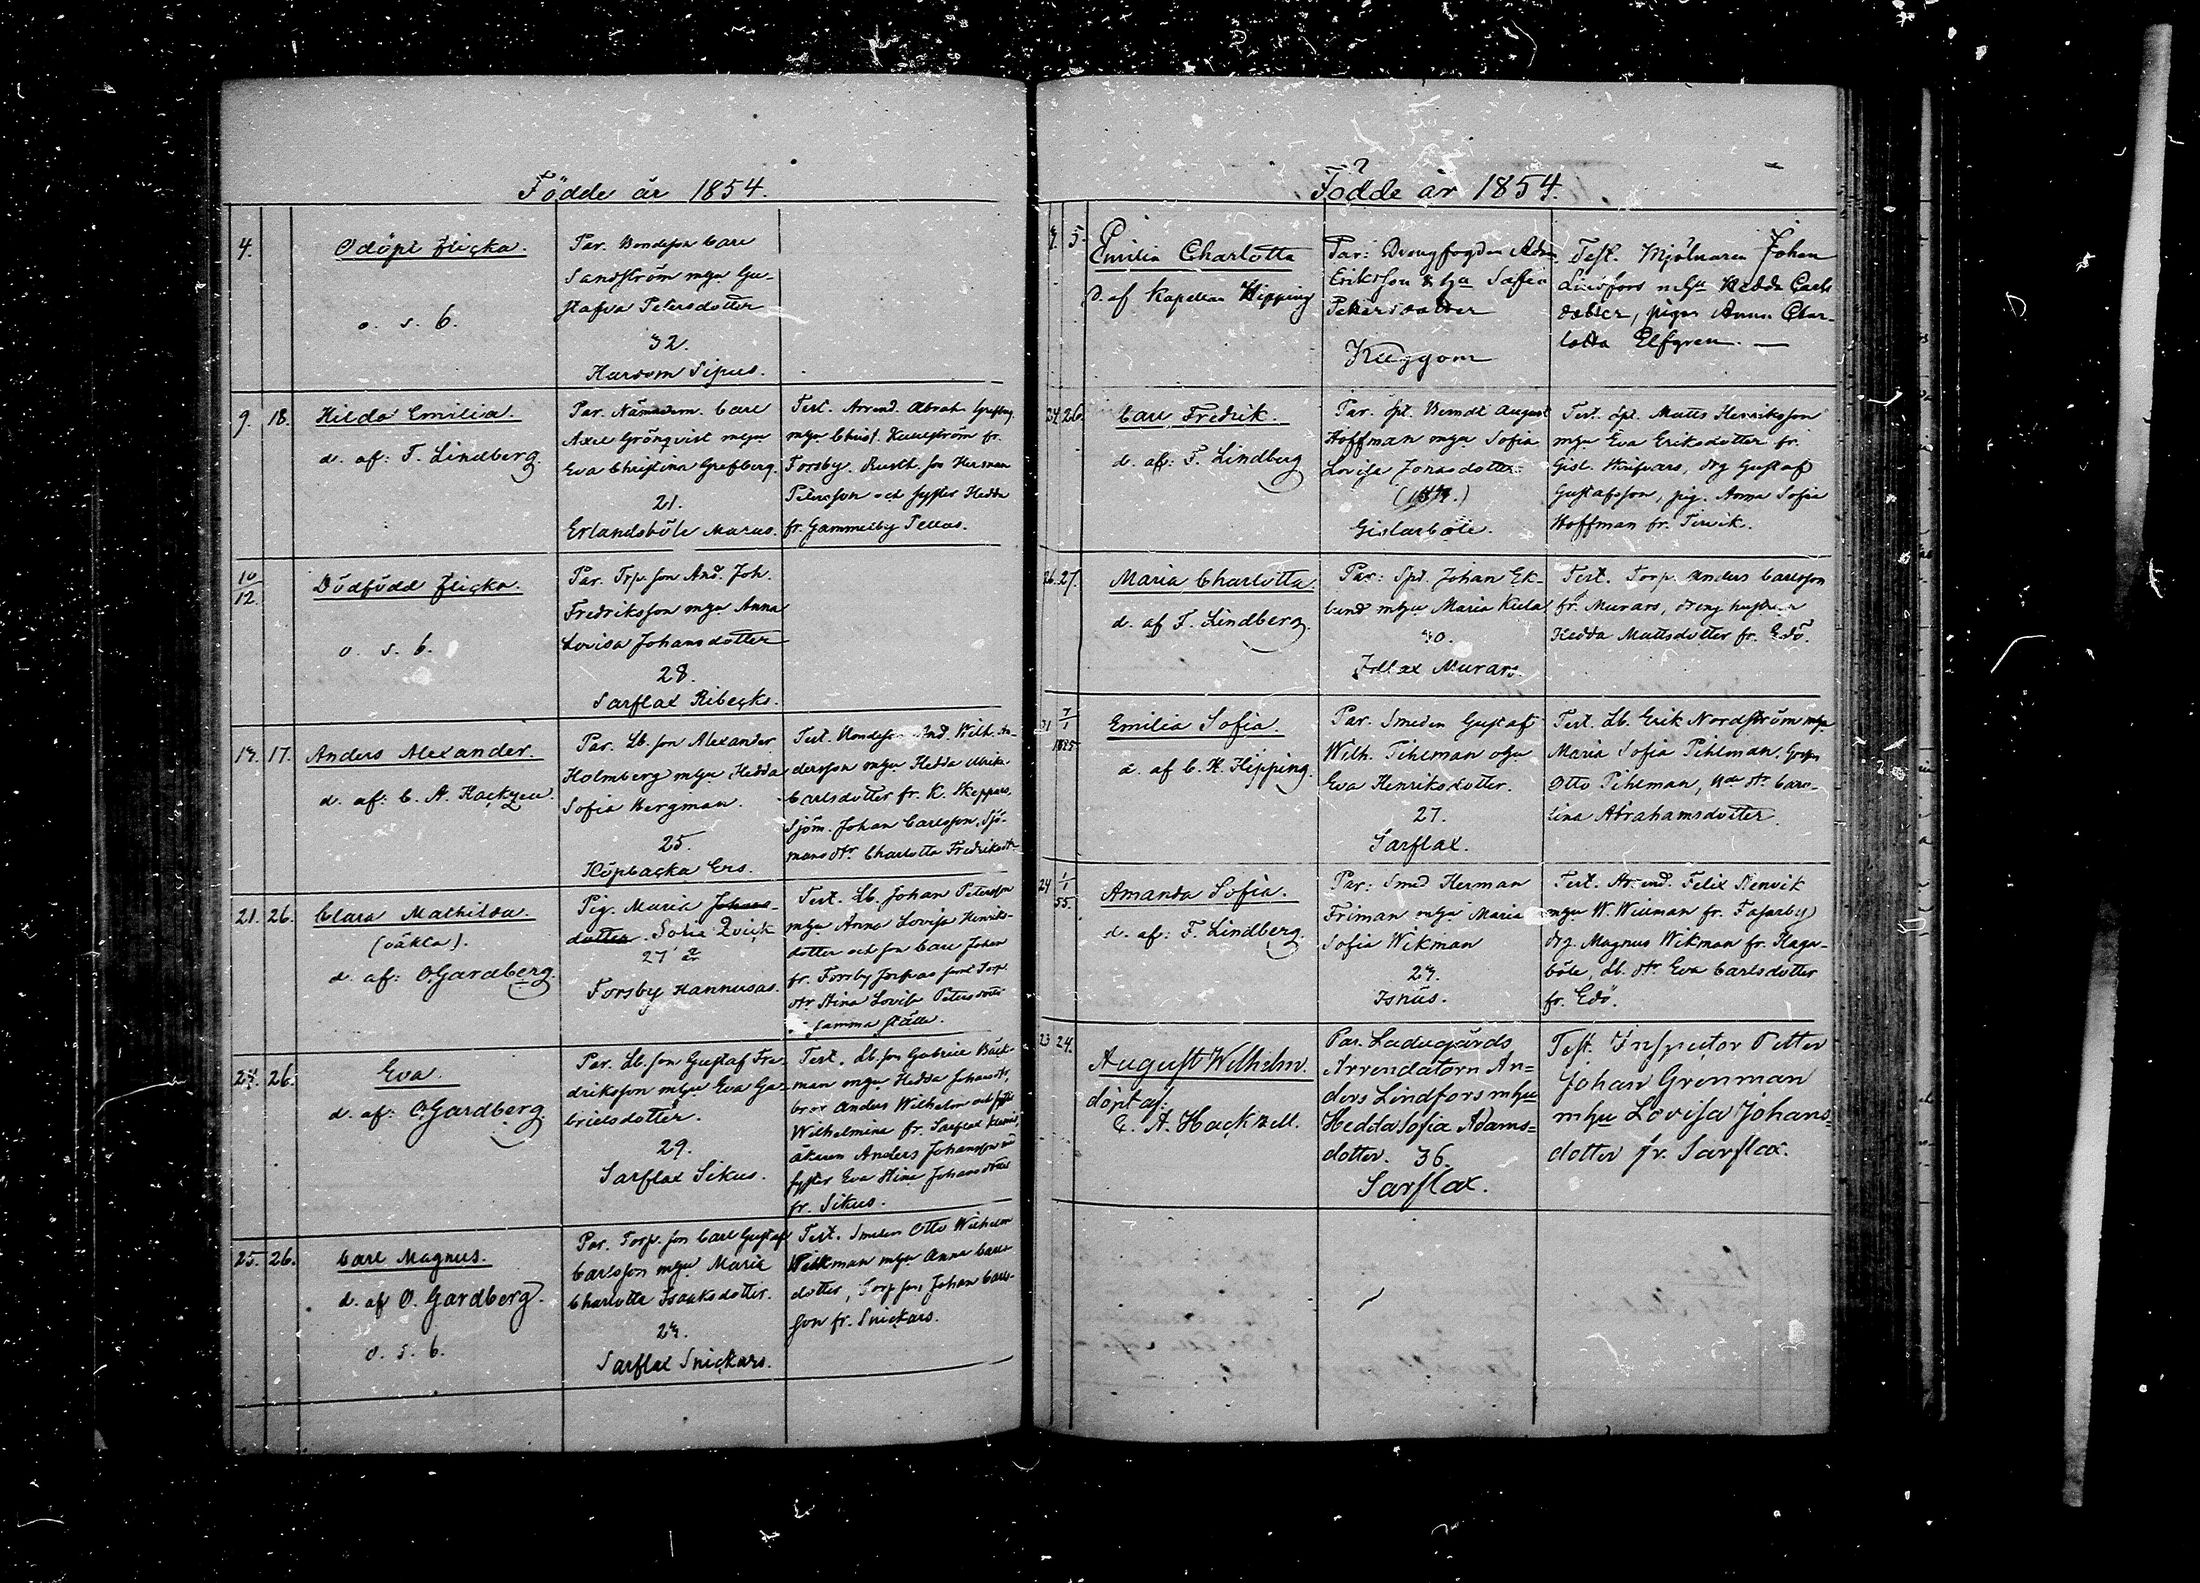 Födde år 1854.
4.
Odöpt flicka.
o. s. b.
Par. Bondeson Carl
Sandström mhu Gu-
stafva Petersdotter
32.
Harsom Sipus.
9. 18. Hilda Emilia.
d. af: F. Lindberg.
Par. Nämndem. Carl
Axel Grönqvist mhu
Eva Christina Grefberg.
21.
Erlandsböle Maras.
Test. Arrend. Abrah. Grefberg
mhu Christ. fr.
Forsby. Rusth. son Herman
Petersson och syster Hedda
fr. Gammelby Pellas.
10
12.
Dödfödd flicka.
o. s. b.
Par. Trp. son And. Joh.
Fredriksson mhu Anna
Lovisa Johansdotter
28.
Sarflax Ribecks.
17. Anders Alexander.
d. af: C. A. Hackzell.
Par. Lb. son Alexander
Holmberg mhu Hedda
Sofia Bergman.
25.
Köpbacka Ers.
Test. Bondeson And. Wilh. An-
dersson mhu Hedda Ulrika
Carlsdotter fr. K. Skeppars
Sjöm. Johan Carlsson, Sjö-
mans dtr Charlotta Fredriksdtr
21. 26. Clara Mathilda.
(oäkta).
d. af: O. Gardberg.
Pig. Maria Johans-
dotter. Sofia Qvick
27 år
Forsby Hannusas.
Test. Lb. Johan Petersson
mhu Anna Lovisa Henriks-
dotter och son Carl Johan
fr. Forsby samt Torp.
dtr Stina Lovisa Petersdotter
samma ställe.
24. 26. Eva.
d. af: O. Gardberg.
Par. Lb. son Gustaf Fre-
driksson mhu Eva Ga-
brielsdotter.
29.
Sarflax Sikus.
Test. Lb. son Gabriel Bäck-
man mhu Hedda Johansdtr,
bror Anders Wilhelm och syster
Wilhelmina fr. Sarflax
åkaren Anders Johansson och
syster Eva Stina Johansdotter
fr. Sikus.
25. 26. Carl Magnus.
d. af O. Gardberg.
o. s. b.
Par. Torp. son Carl Gustaf
Carlsson mhu Maria
Charlotta Isaaksdotter.
23.
Sarflax Snickars.
Test. Smeden Otto Wilhelm
Wickman mhu Anna Carls-
dotter, Torp. son Johan Carls-
son fr. Snickars.
Födde år 1854.
3. 5. Emilia Charlotta
d. af Kapellan Hipping
Par: Drengfogden Adam
Eriksson & hu Sofia
Petersdotter
Kuggom
Test. Mjölnaren Johan
Lindfors mhu Hedda Carls
dotter, pigan Anna Char-
lotta Elfgren. —
24. 26. Carl Fredrik.
d. af: F. Lindberg
Par. Spt. Berndt August
Hoffman mhu Sofia
Lovisa Jonasdotter.
Gislarböle.
Test. Spt. Matts Henriksson
mhu Eva Eriksdotter fr.
Gisl. drg Gustaf
Gustafsson, pig. Anna Sofia
Hoffman fr. Tervik.
26. 27. Maria Charlotta.
d. af F. Lindberg.
Par: Spt. Johan Ek-
lund mhu Maria Kula
30.
Isflax Murars.
Test. Torp. Anders Carlsson
fr. Murars, dreng hustrun
Hedda Mattsdotter fr. Edö.
21 7
1
1855
Emilia Sofia.
d. af C. H. Hipping.
Par. Smeden Gustaf
Wilh. Pihlman mhu
Eva Henriksdotter.
27.
Sarflax.
Test. Lb. Erik Nordström mhu
Maria Sofia Pihlman.
Otto Pihlman, dtr Caro-
lina Abrahamsdotter.
24 1
1
55.
Amanda Sofia.
d. af: F. Lindberg.
Par: Smed Herman
Friman mhu Maria
Sofia Wikman
23.
Isnäs.
Test. Arrend. Felix Renvik
mhu W. Wikman fr. Fasarby
drg. Magnus Wikman fr. Haga-
böle, Lb. dtr Eva Carlsdotter
fr. Edö.
23 24. August Wilhelm.
döpt af:
C. A. Hackzell.
Par. Ladugårds
Arrendatorn An=
ders Lindfors mhu
Hedda Sofia Adams=
dotter. 36.
Sarflax.
Test. Inspector Petter
Johan Grönman
mhu Lovisa Johans=
dotter fr. Sarflax.